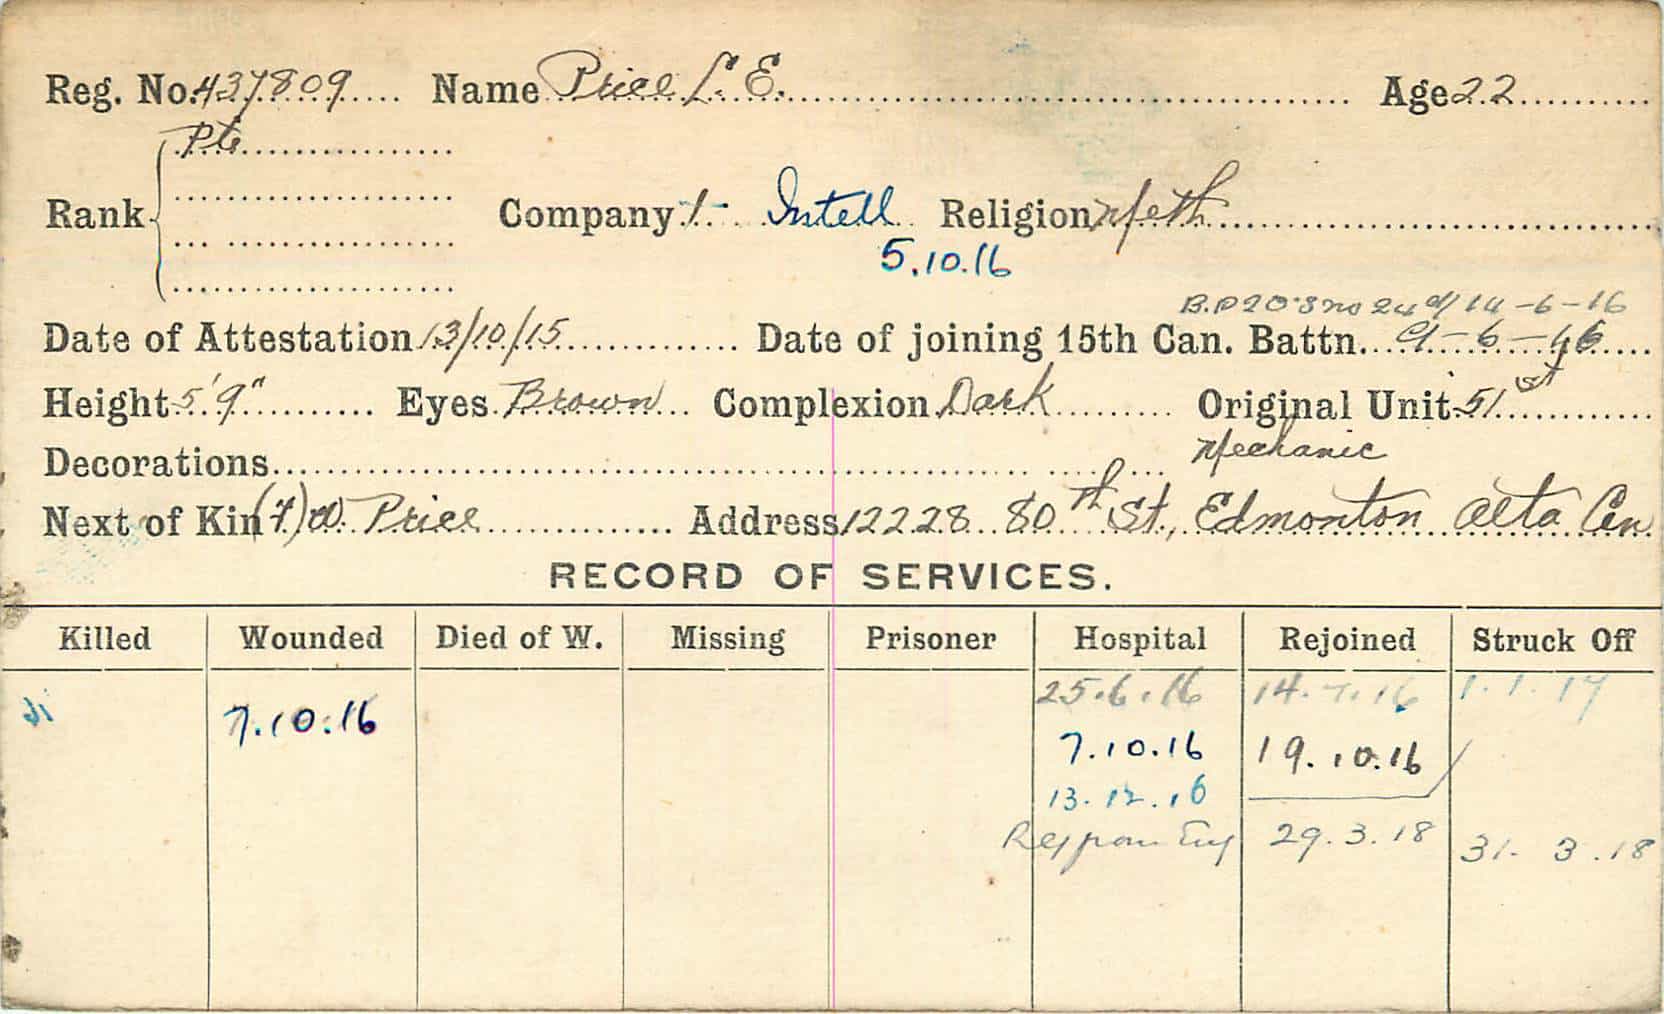 Reg. No. 437809 Name Price L. E. Age 22
Pte
Rank Company 1 Intell Religion Meth
5.10.16
B.P 20 14-6-16
Date of Attestation 13/10/15 Date of joining 15th Can. Battn. 9-6-16
Height 5'9" Eyes Brown Complexion Dark Original Unit 51st
Decorations Mechanic
Next of Kin (F) W. Price Address 12228 80th St., Edmonton Alta Can
RECORD OF SERVICES.
Killed Wounded Died of W. Missing Prisoner Hospital Rejoined Struck Off
7.10.16 25.6.16 14.7.16 1.1.17
7.10.16 19.10.16
13.12.16
Rej from Eng 29.3.18 31.3.18